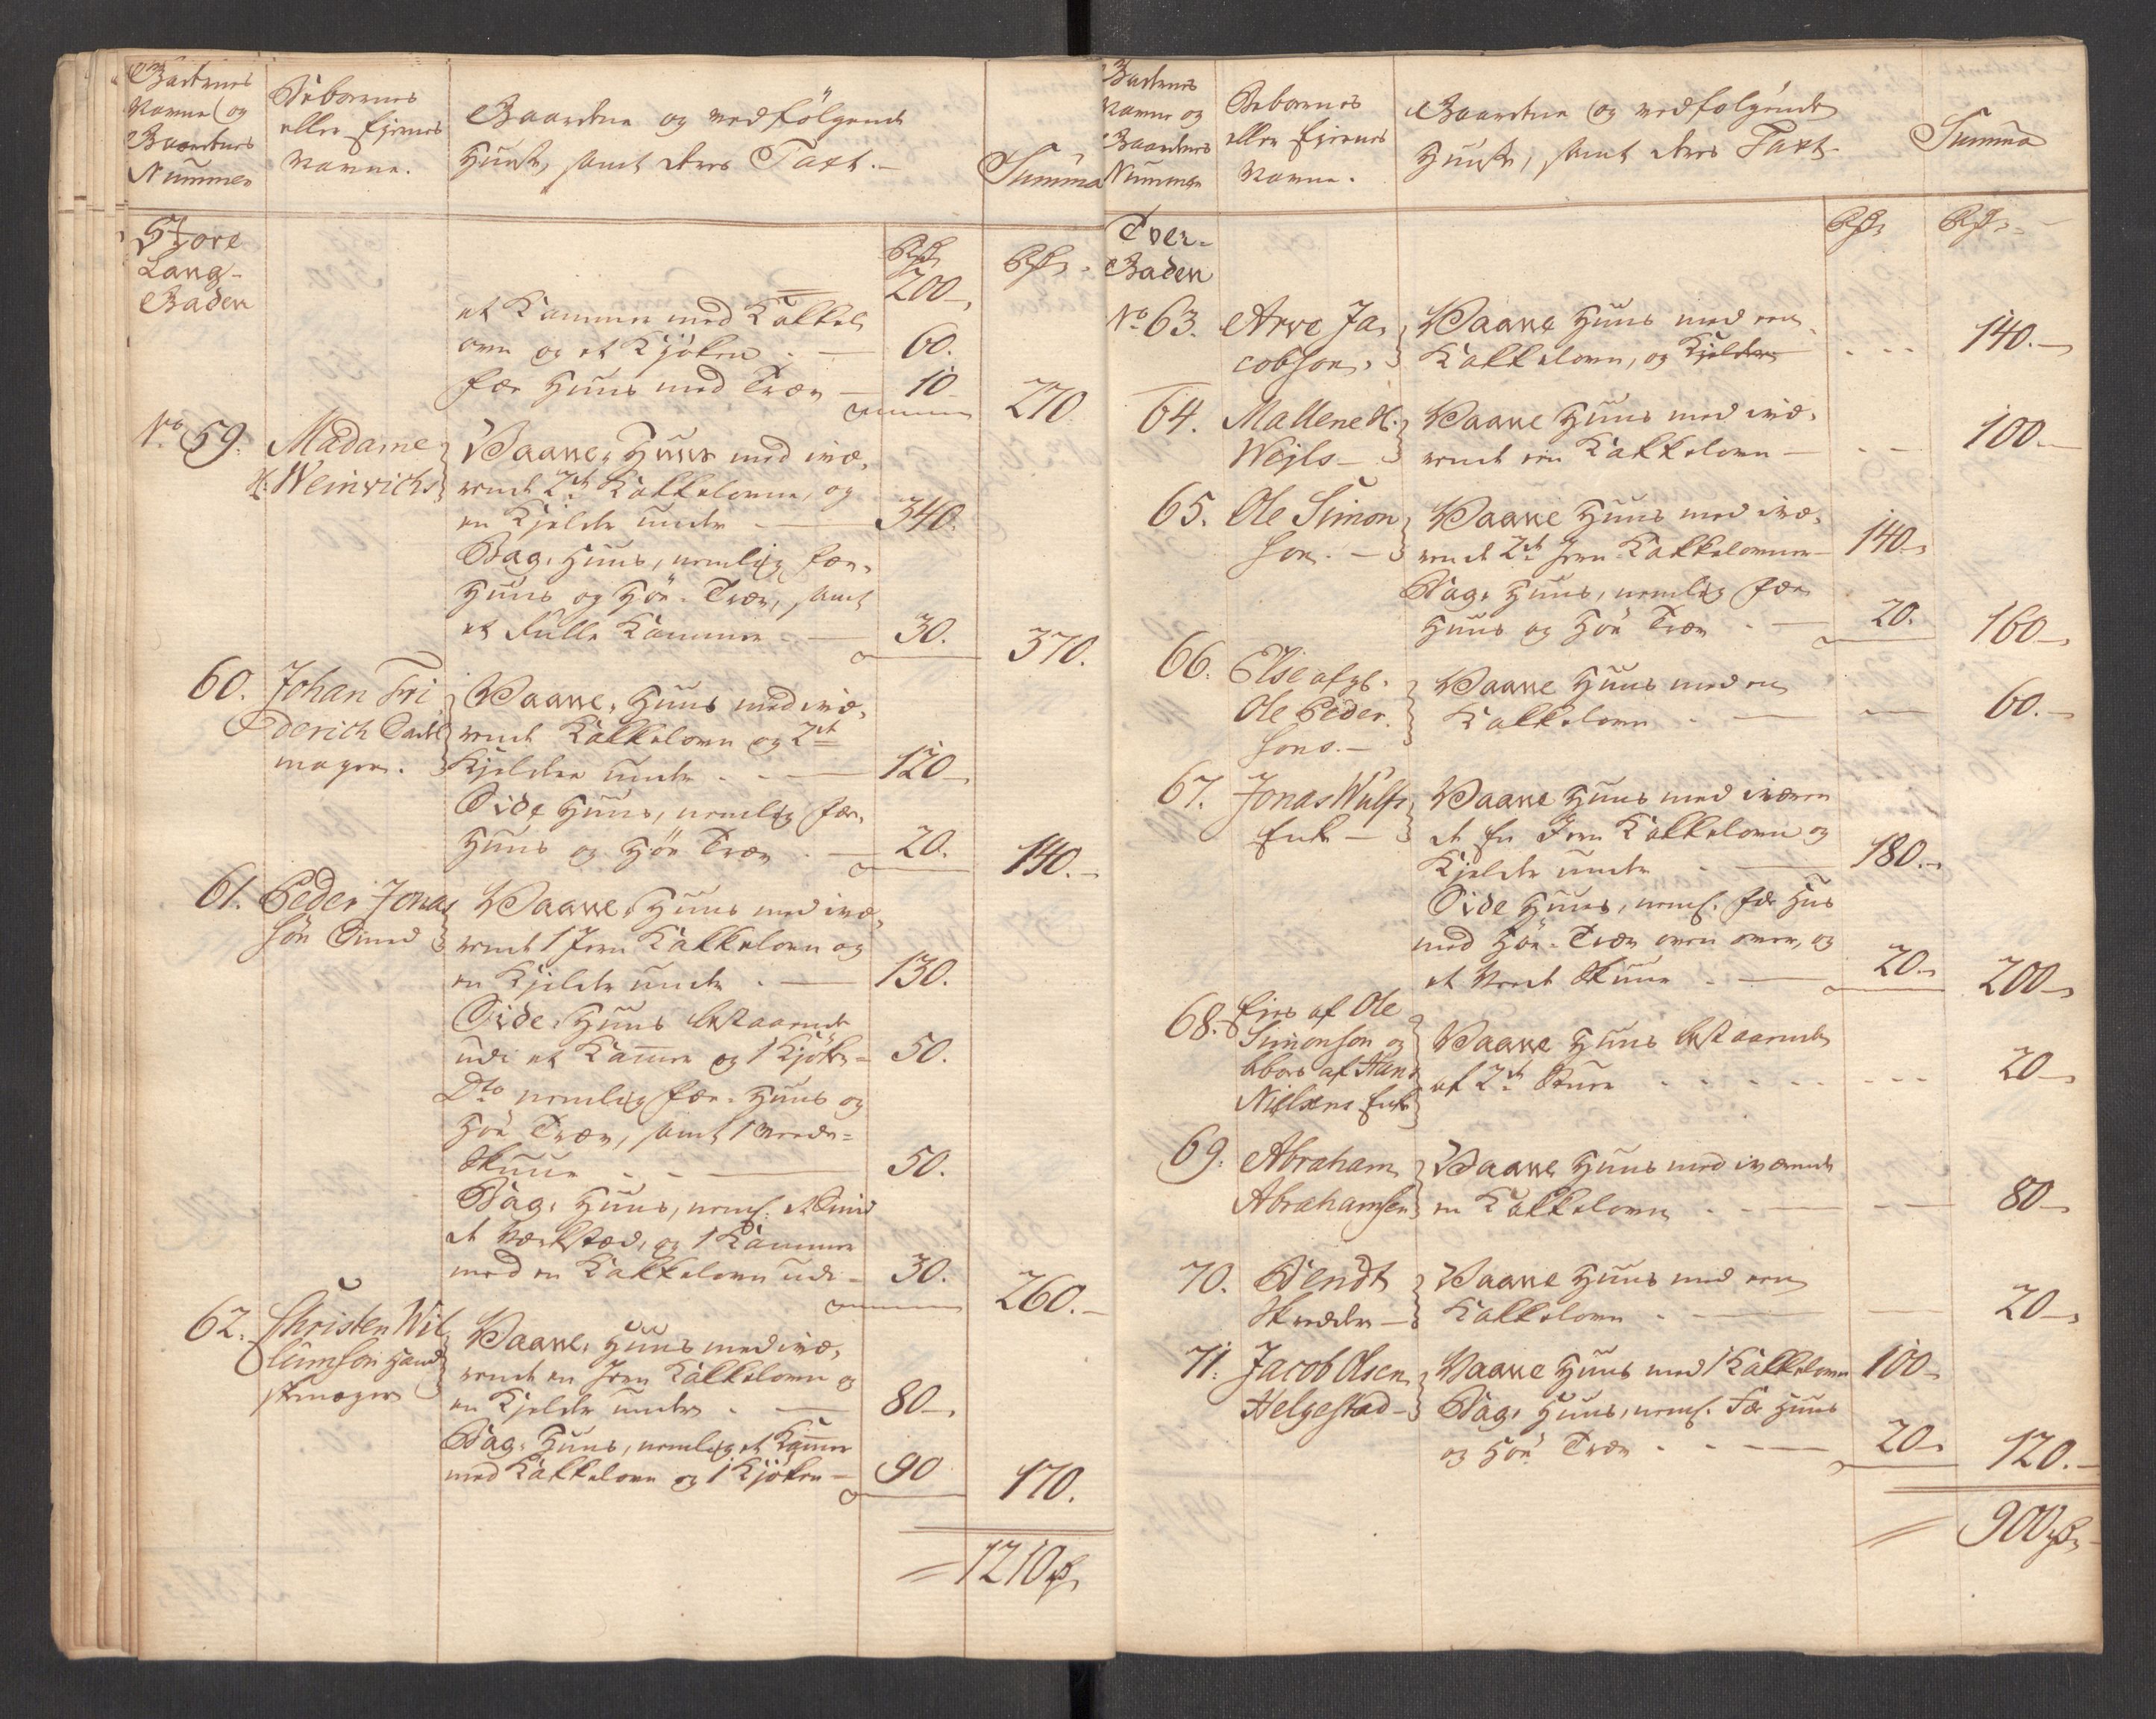 Gadernes
Navne og
Gaardnes
Nummer
Beboernes
eller Ejernes
Navne.
Gaardene og medfölgende
Huuse, samt deres Taxt.
Summa
Store
Lang-
Gaden
Rdr
200
Rdr.
et Kammer med Kakkel
ovn og et Kjöken - 60.
Fæe Huus med Træv - 10
270.
No. 59. Madame
H: Weinrichs
Vaane, Huus med invæ,
rende 2de Kakkelovne, og
en Kjelder under - 340.
Bag, Huus, nemlig Fæe,
Huus og Höe Træv, samt
et Lille Kammer - 30.
370.
60. Johan Fri
derich
mager.
Vaane, Huus med invæ,
rende Kakkelovn og 2de
Kjeldere under - 120
Side Huus, nemlig Fæe,
Huus og Höe Træv - 20.
140.
61. Peder Jonas
sön Smed
Vaane, Huus med invæ,
rende 1 Jern Kakkelovn og
en Kjelder under - 130.
Side, Huus bestaaende
udi et Kammer og 1 Kjöken - 50.
Dto nemlig Fæe-Huus og
Höe Træv, samt 1 Veede-
Skuur - 50.
Bag, Huus, neml: et Smid
de Værksted, og 1 Kammer
med en Kakkelovn udi - 30.
260.
62. Christen Wil
lumsön Hand
skemager
Vaane, Huus med invæ,
rende en Jern Kakkelovn og
en Kjelder under - 80
Bag, Huus, nemlig et Kammer
med Kakkelovn og 1 Kjöken - 90
170.
1210 Rdr
Gadernes
Navne og
Gaardnes
Nummer
Beboernes
eller Ejernes
Navne.
Gaardene og medfølgende
Huuse, samt deres Taxt.
Summa
Tver-
Gaden
Rdr
Rdr
No. 63. Arve Ja,
cobson,
Vaane Huus med en
Kakkelovn, og Kjelder
140.
64. Mallene H.
Wejls
Vaane Huus med invæ,
rende en Kakkelovn
100.
65. Ole Simon
son.
Vaane Huus med invæ,
rende 2de Jern Kakkelovner 140
Bag, Huus, nemlig Fæe
Huus og Höe Træv - 20.
160
66. Else afgl.
Ole Peder
sons.
Vaane Huus med en
Kakkelovn
60.
67. Jonas Wulfs
Enke
Vaane Huus med iværen
de En Jern Kakkelovn og
Kjelder under - 180.
Side Huus, neml. Fæe Hus
med Höe-Træv oven over, og
et Veede Skuur - 20.
200
68. Ejes af Ole
Simonson og
beboes af Hans
Nielsens Enke
Vaane Huus bestaaende
af 2de Stuer
20
69. Abraham
Abrahamsen
Vaane Huus med iværende
en Kakkelovn
80
70. Bendt
Skredder
Vaane Huus med en
Kakkelovn
20
71. Jacob Olsen
Helgestad
Vaane Huus med 1 Kakkelovn 100
Bag, Huus, neml. Fæe Huus
og Höe Træv - 20
120.
900 Rdr